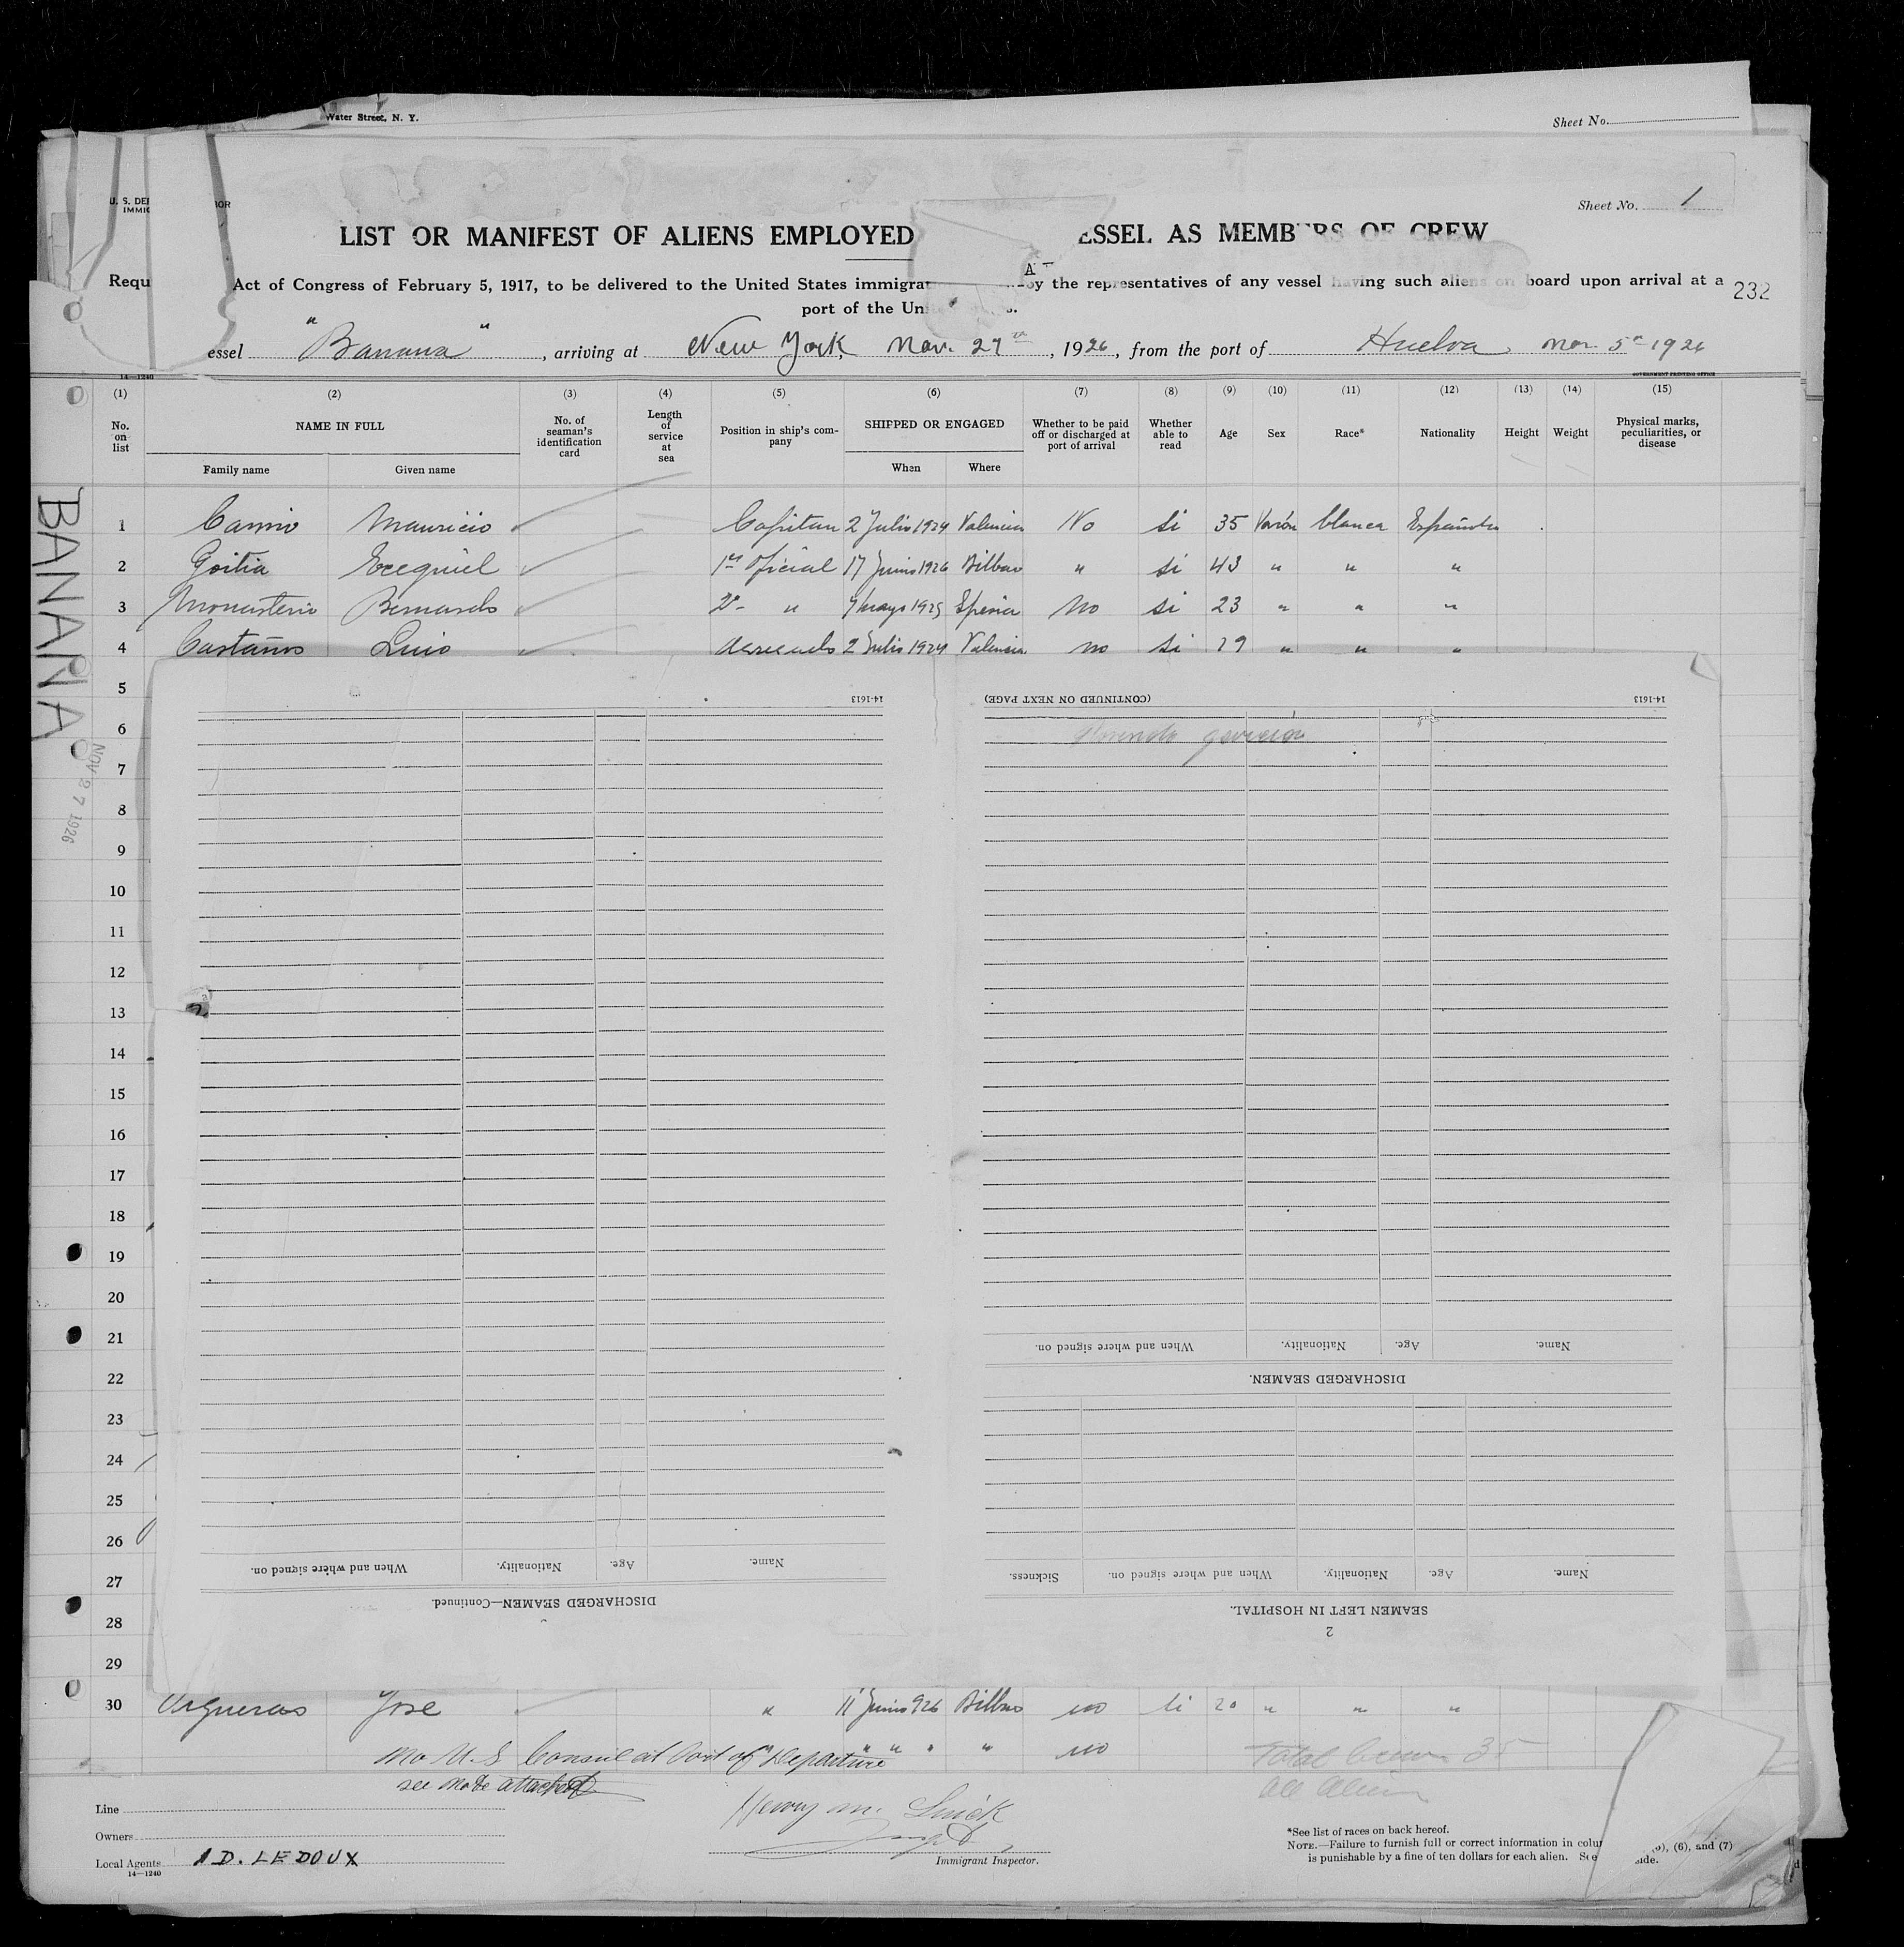 Water Street, N. Y.
Sheet No.
U. S. DE
IMMIG
OR
Sheet No. 1
LIST OR MANIFEST OF ALIENS EMPLOYED ESSEL AS MEMBERS OF CREW
Requ Act of Congress of February 5, 1917, to be delivered to the United States immigra by the representatives of any vessel having such aliens on board upon arrival at a
port of the Uni
232
essel " " , arriving at New York Nov. 27th, 1926, from the port of Huelva Nov 5 1926
14—1240
GOVERNMENT PRINTING OFFICE
(1) (2) (3) (4) (5) (6) (7) (8) (9) (10) (11) (12) (13) (14) (15)
No. on list NAME IN FULL No. of seaman's identification card Length of service at sea Position in ship's company SHIPPED OR ENGAGED Whether to be paid off or discharged at port of arrival Whether able to read Age Sex Race* Nationality Height Weight Physical marks, peculiarities, or disease
Family name Given name When Where
BANARIA
NOV 27 1926
1 Mauricio Capitan 2 Julio 1924 Valencia No si 35 Varón blanca Española
2 Goitia Ezequiel 1er Oficial 17 Junio 1926 Bilbao " si 43 " " "
3 Monasterio Bernardo 2º " 7 Mayo 1925 Spezia No si 23 " " "
4 Castaños Luis agregado 2 Julio 1924 Valencia no si 19 " " "
5
6
7
8
9
10
11
12
13
14
15
16
17
18
19
20
21
22
23
24
25
26
27
28
29
14-1613
When and where signed on. Nationality. Age. Name.
DISCHARGED SEAMEN—Continued.
(CONTINUED ON NEXT PAGE) 14-1613
When and where signed on. Nationality. Age. Name.
DISCHARGED SEAMEN.
Sickness. When and where signed on. Nationality. Age. Name.
SEAMEN LEFT IN HOSPITAL.
2
30 Jose " 11 Junio 926 Bilbao no si 20 " " "
No U.S Consul at Port of Departure " " " " no Total Crew 35
see note attached All Alien
Line
Owners
Local Agents A D. LEDOUX
14—1240
Immigrant Inspector.
*See list of races on back hereof.
NOTE.—Failure to furnish full or correct information in colu (6), and (7)
is punishable by a fine of ten dollars for each alien. See side.